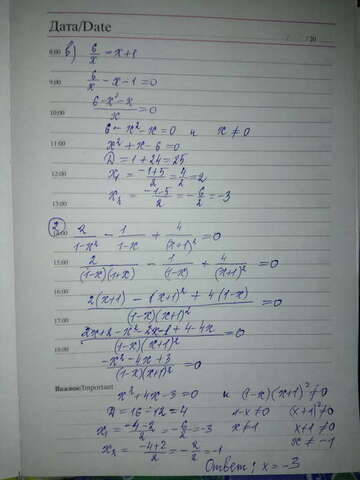 Дата/Date
/ /20
8:00 в) 6/x = x+1
9:00 6/x - x - 1 = 0
(6 - x² - x)/x = 0
10:00
6 - x² - x = 0 и x ≠ 0
11:00 x² + x - 6 = 0
D = 1 + 24 = 25
12:00 x₁ = (-1+5)/2 = 4/2 = 2
x₂ = (-1-5)/2 = -6/2 = -3
13:00
14:00 2/(1-x²) - 1/(1-x) + 4/(x+1)² = 0
15:00 2/((1-x)(1+x)) - 1/(1-x) + 4/(x+1)² = 0
16:00 (2(x+1) - (x+1)² + 4(1-x))/((1-x)(x+1)²) = 0
17:00
(2x+2 - x² - 2x - 1 + 4 - 4x)/((1-x)(x+1)²) = 0
18:00
(-x² - 4x + 3)/((1-x)(x+1)²) = 0
Важное/Important x² + 4x - 3 = 0 и (1-x)(x+1)² ≠ 0
D = 16 - 12 = 4 1-x ≠ 0 (x+1)² ≠ 0
x₁ = (-4-2)/2 = -6/2 = -3 x ≠ 1 x+1 ≠ 0
x ≠ -1
x₂ = (-4+2)/2 = -2/2 = -1
Ответ: x = -3